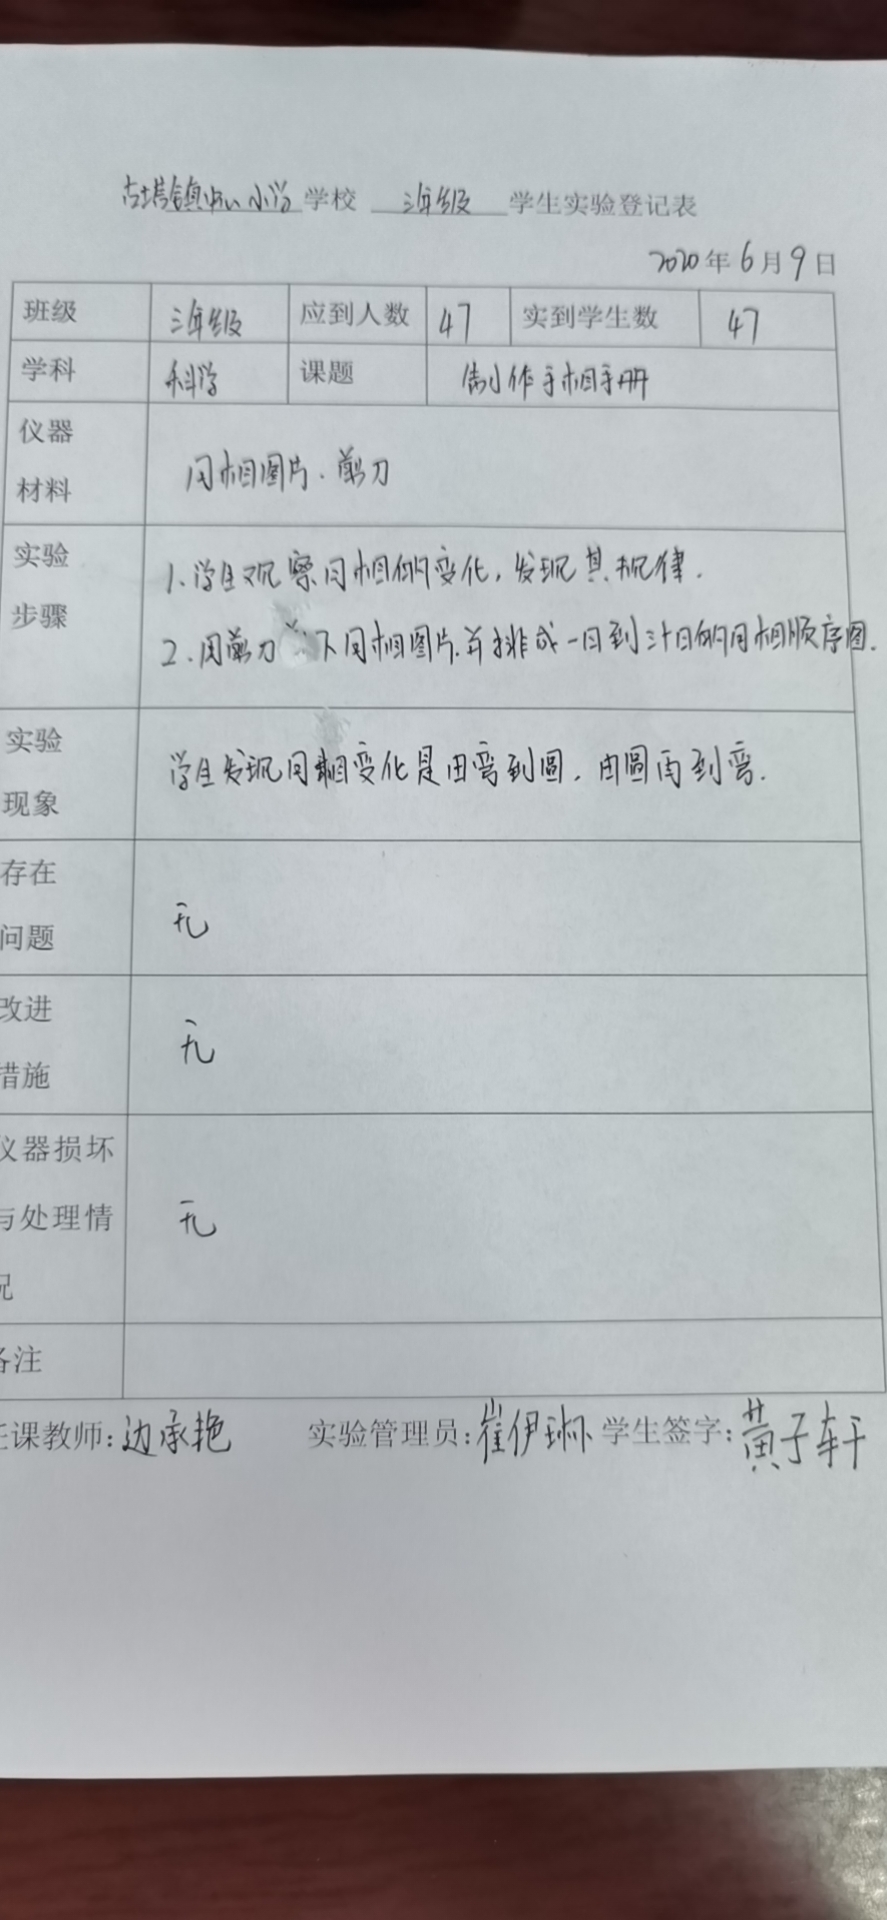 古塔镇中心小学学校 三年级 学生实验登记表
2020年6月9日
班级 三年级 应到人数 47 实到学生数 47
学科 科学 课题 制作手相手册
仪器
材料
月相图片、剪刀
实验
步骤
1、学生观察月相的变化，发现其规律.
2、用剪刀 下月相图片.并排成一日到三十日的月相顺序图.
实验
现象
学生发现月相变化是由弯到圆，由圆再到弯.
存在
问题
无
改进
措施
无
仪器损坏
与处理情
况
无
备注
任课教师:边承艳 实验管理员:崔伊琳 学生签字:黄子轩